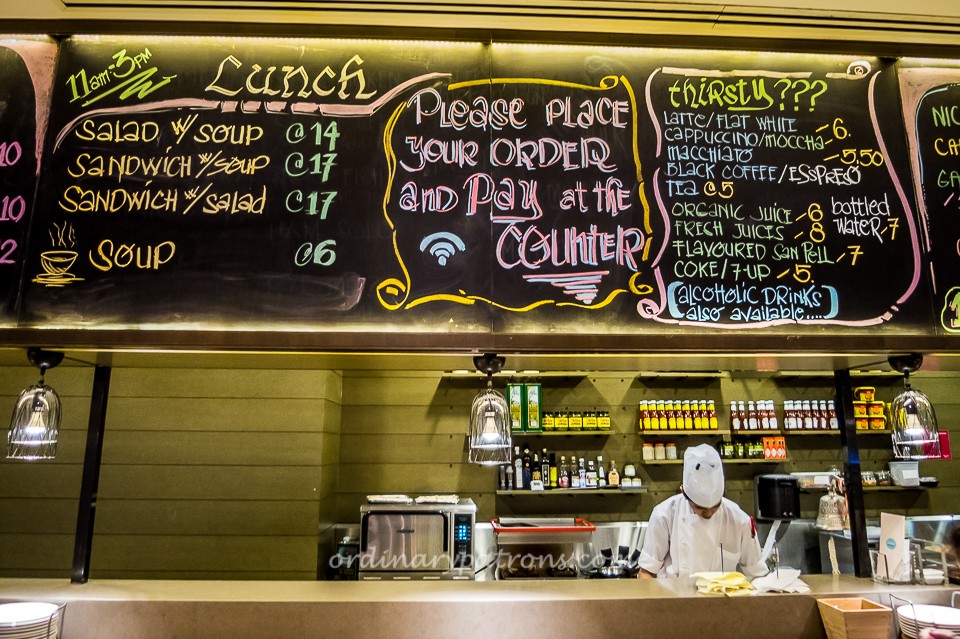 10
10
2
11am-3pm Lunch
Salad w/ Soup @ 14
Sandwich w/ Soup @ 17
Sandwich w/ Salad @ 17
Soup @ 6
Please place
your order
and Pay at the
Counter
thirsty???
Latte/Flat White
Cappuccino/Moccha - 6.
Macchiato - 5,50
Black Coffee/Esspreso
Tea @ 5
Organic Juice - 6
Fresh Juices - 8
Flavoured San Pell - 7
Coke/7-up - 5.
bottled
water 7
[alcoholic Drinks
also available....]
Nic
Ca
Ga
ordinarypatrons.com